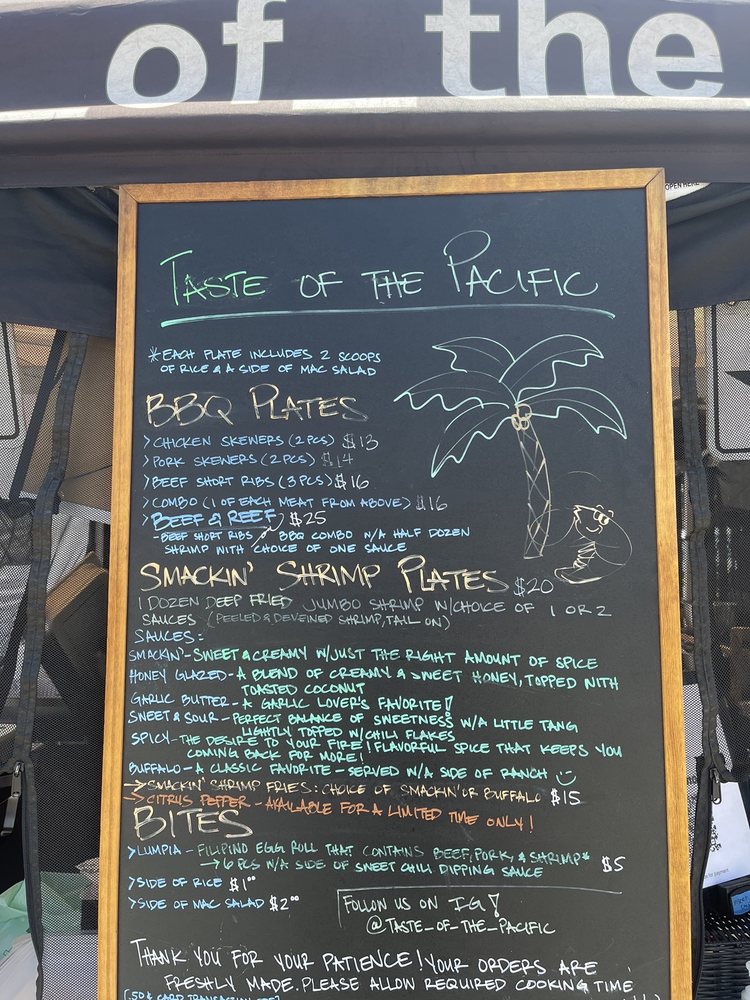 of the
OPEN HERE
TASTE OF THE PACIFIC
*EACH PLATE INCLUDES 2 SCOOPS
OF RICE & A SIDE OF MAC SALAD
BBQ PLATES
>CHICKEN SKEWERS (2PCS) $13
>PORK SKEWERS (2PCS) $14
>BEEF SHORT RIBS (3PCS) $16
>COMBO (1 OF EACH MEAT FROM ABOVE) $16
>BEEF & REEF $25
-BEEF SHORT RIBS BBQ COMBO W/A HALF DOZEN
SHRIMP WITH CHOICE OF ONE SAUCE
SMACKIN' SHRIMP PLATES $20
1 DOZEN DEEP FRIED JUMBO SHRIMP W/CHOICE OF 1 OR 2
SAUCES (PEELED & DEVEINED SHRIMP, TAIL ON)
SAUCES:
SMACKIN' - SWEET & CREAMY W/JUST THE RIGHT AMOUNT OF SPICE
HONEY GLAZED - A BLEND OF CREAMY & SWEET HONEY, TOPPED WITH
TOASTED COCONUT
GARLIC BUTTER - A GARLIC LOVER'S FAVORITE!
SWEET & SOUR - PERFECT BALANCE OF SWEETNESS W/A LITTLE TANG
LIGHTLY TOPPED W/CHILI FLAKES
SPICY - THE DESIRE TO YOUR FIRE! FLAVORFUL SPICE THAT KEEPS YOU
COMING BACK FOR MORE!
BUFFALO - A CLASSIC FAVORITE - SERVED W/A SIDE OF RANCH
→SMACKIN' SHRIMP FRIES: CHOICE OF SMACKIN' OR BUFFALO $15
→CITRUS PEPPER - AVAILABLE FOR A LIMITED TIME ONLY!
BITES
>LUMPIA - FILIPINO EGG ROLL THAT CONTAINS BEEF, PORK, & SHRIMP*
→6 PCS W/A SIDE OF SWEET CHILI DIPPING SAUCE $5
>SIDE OF RICE $1⁰⁰
>SIDE OF MAC SALAD $2⁰⁰
FOLLOW US ON IG!
@TASTE_OF_THE_PACIFIC
THANK YOU FOR YOUR PATIENCE! YOUR ORDERS ARE
FRESHLY MADE. PLEASE ALLOW REQUIRED COOKING TIME